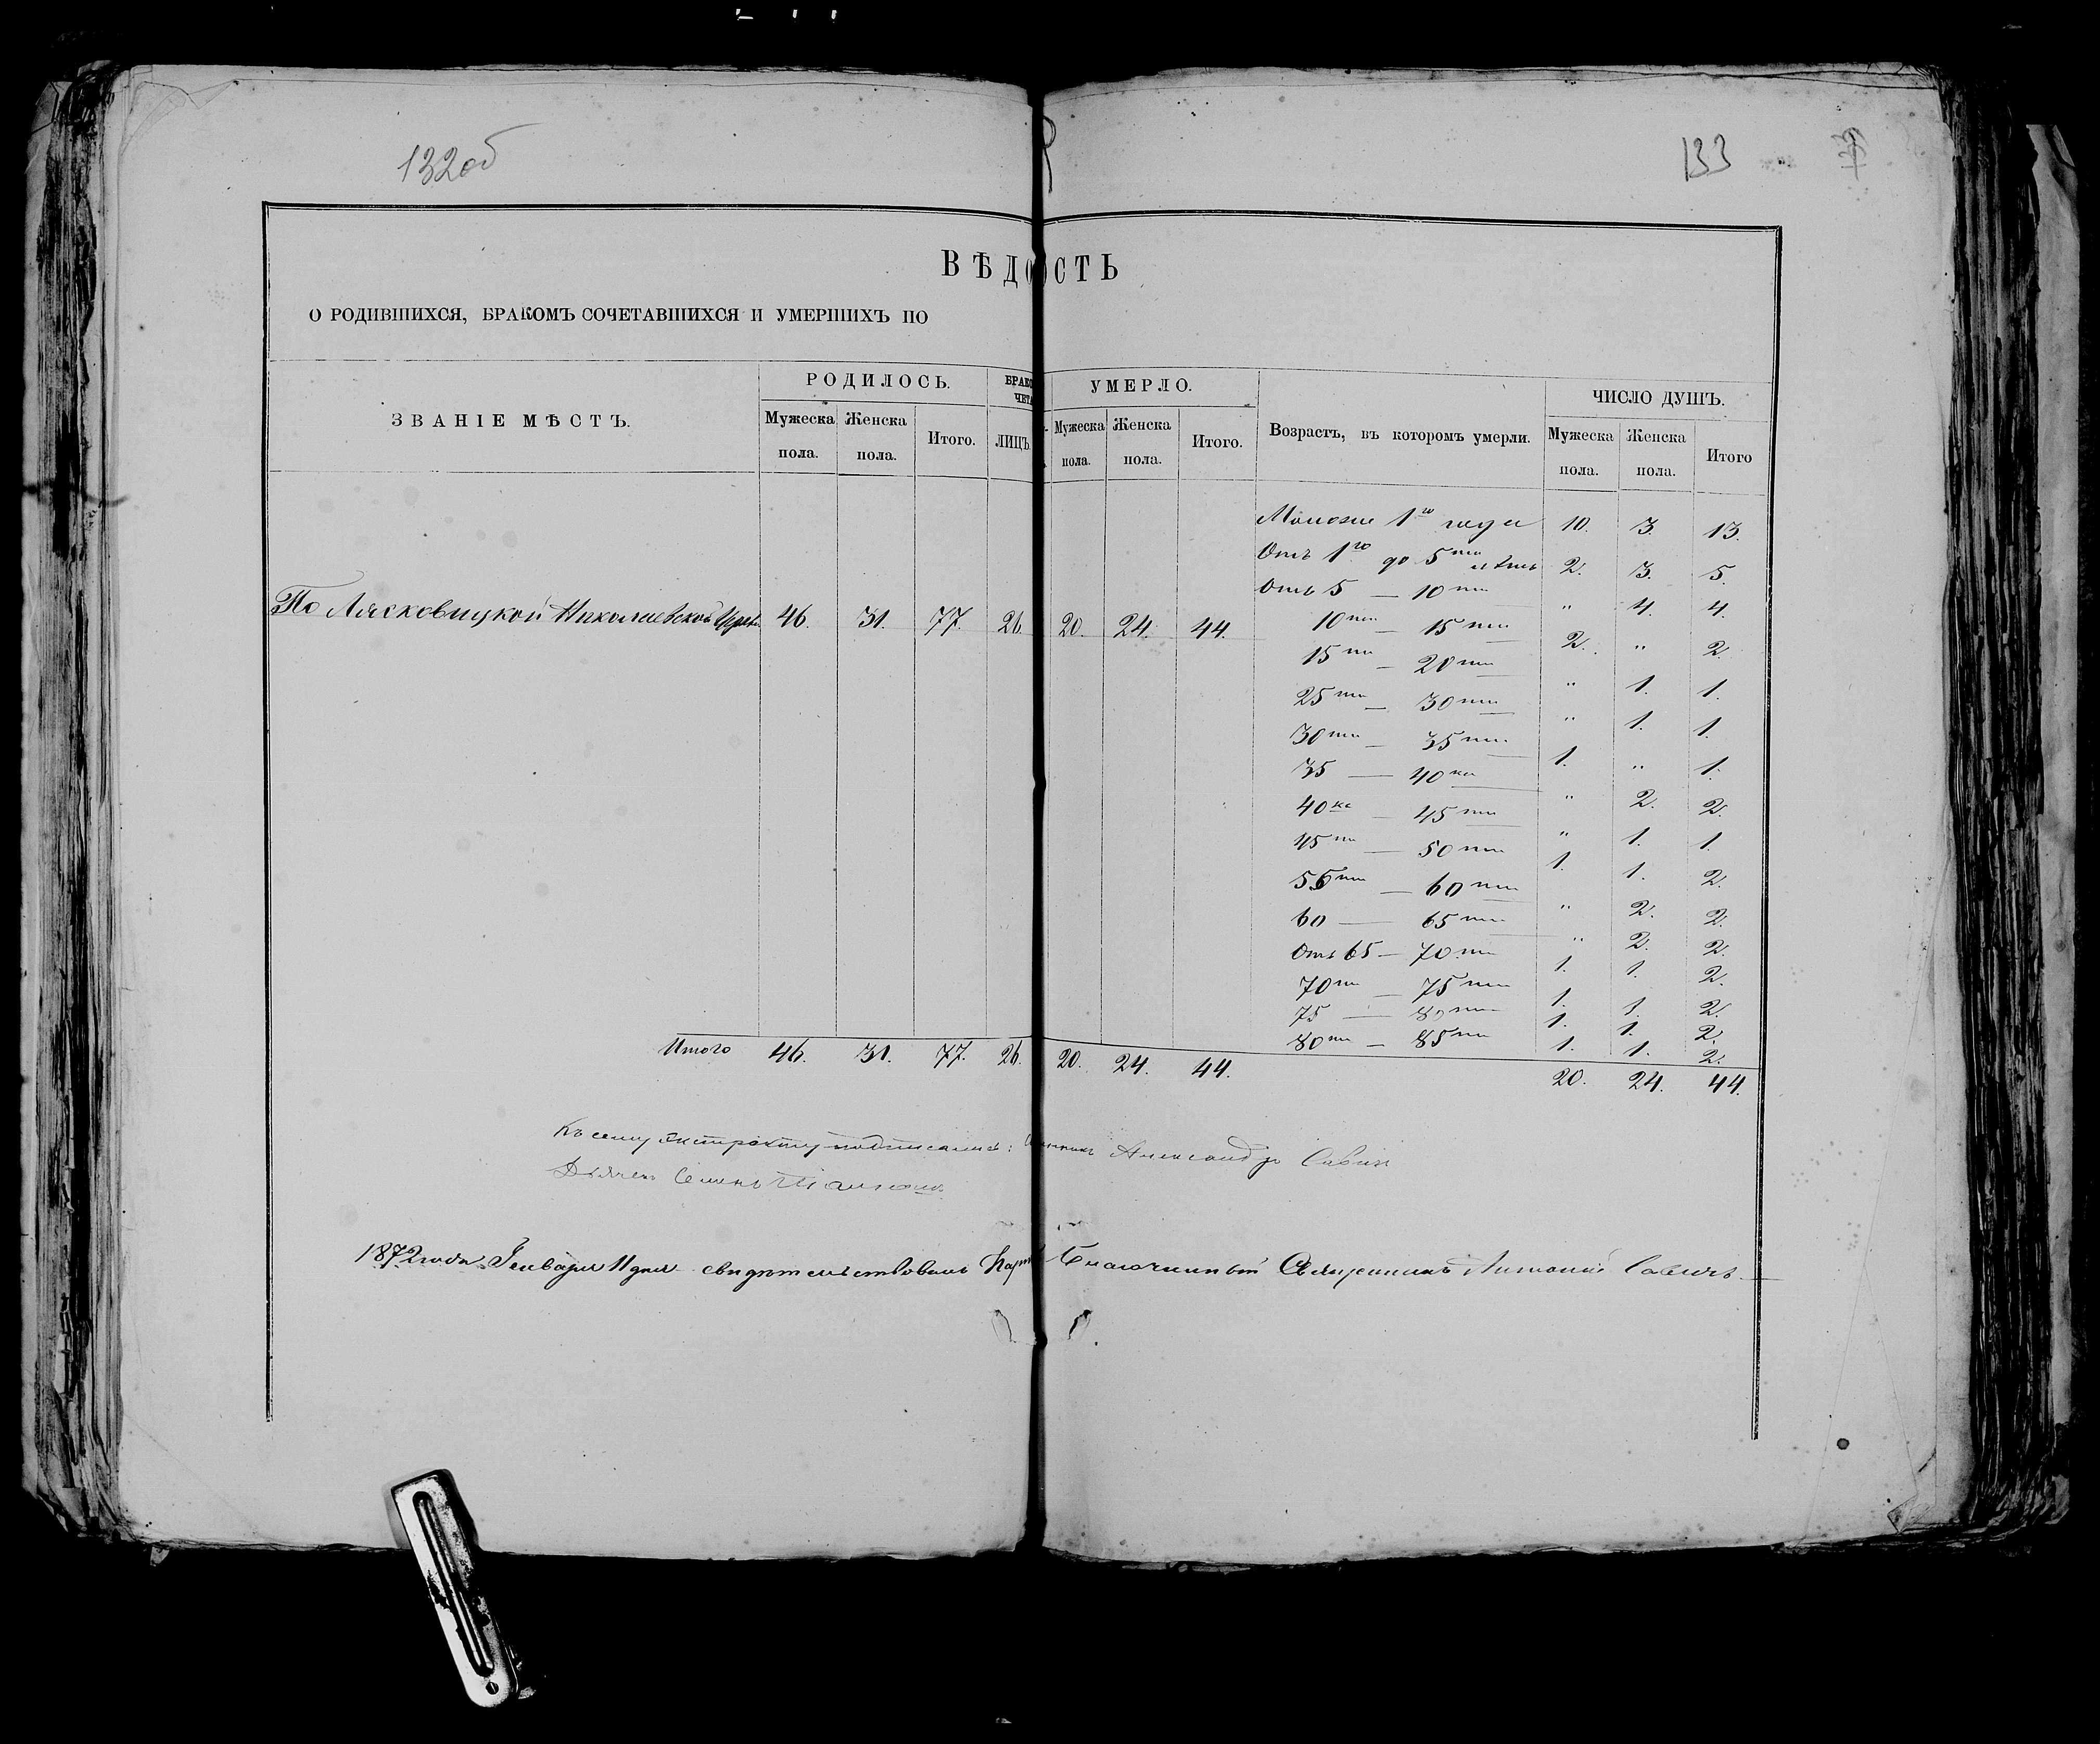 132об
133
ВѢДО ОСТЬ
О РОДИВШИХСЯ, БРАКОМЪ СОЧЕТАВШИХСЯ И УМЕРШИХЪ ПО
ЗВАНІЕ МѢСТЪ.
РОДИЛОСЬ.
Мужеска пола.
Женска пола.
Итого.
БРАКО
ЧЕТА
ЛИЦЪ.
УМЕРЛО.
Мужеска пола.
Женска пола.
Итого.
Возрастъ, въ которомъ умерли.
ЧИСЛО ДУШЪ.
Мужеска пола.
Женска пола.
Итого
Моложе 1го года 10. 3. 13.
Отъ 1го до 5ти лѣтъ 2. 3. 5.
Отъ 5 — 10ти " 4. 4.
По Лясковицкой Николаевской Церкви 46. 31. 77. 26. 20. 24. 44.
10ти — 15ти 2. " 2.
15ти — 20ти " 1. 1.
25ти — 30ти " 1. 1.
30ти — 35ти 1. " 1.
35 — 40ка " 2. 2.
40ка — 45ти " 1. 1.
45ти — 50ти 1. 1. 2.
55ти — 60ти " 2. 2.
60 — 65ти " 2. 2.
Отъ 65 — 70ти 1. 1. 2.
70ти — 75ти 1. 1. 2.
75 — 80ти 1. 1. 2.
80ти — 85ти 1. 1. 2.
Итого 46. 31. 77. 26. 20. 24. 44. 20. 24. 44.
Къ сему экстракту подписались: Александръ Савичъ
Дьячекъ Семенъ
1872 года Генваря 11 дня свидѣтельствовалъ Благочинный Священникъ Антоній Савичъ —